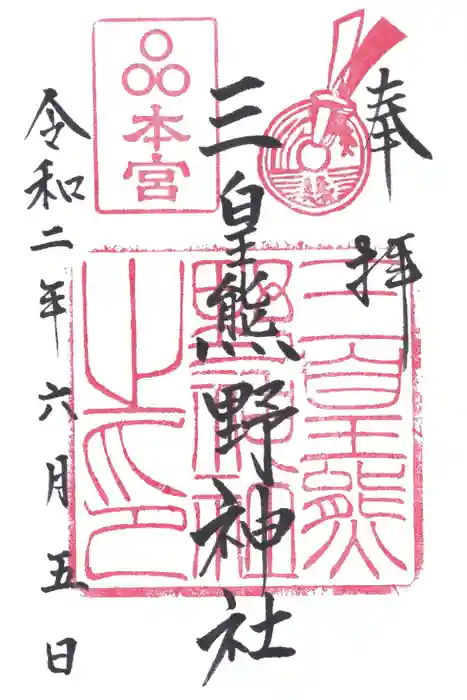 奉拝
三皇熊野神社
本宮
三皇熊野神社之印
令和二年六月五日